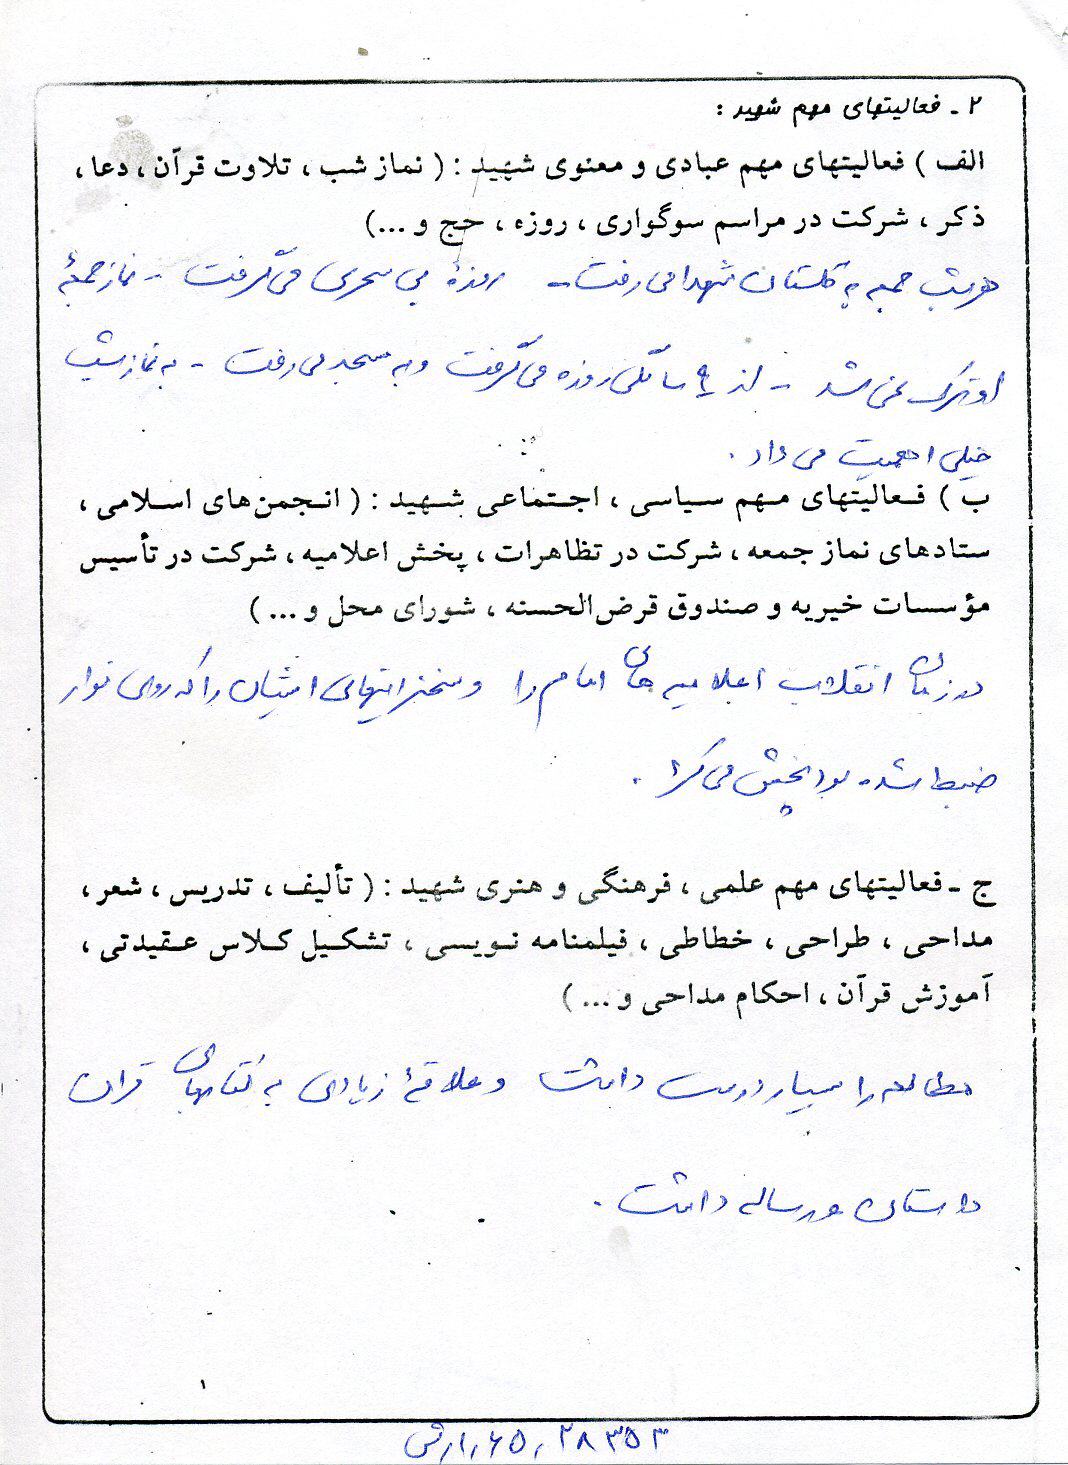 ۲ ـ فعالیتهای مهم شهید :
الف ) فعالیتهای مهم عبادی و معنوی شهید : ( نماز شب ، تلاوت قرآن ، دعا ،
ذکر ، شرکت در مراسم سوگواری ، روزه ، حج و ...)
هر شب جمعه به گلستان شهدا می رفت - روزهٔ بی سحری می گرفت - نماز جمعهٔ
او ترک نمی شد - از ۹ سالگی روزه می گرفت و به مسجد می رفت - به نماز شب
خیلی اهمیت می داد .
ب ) فعالیتهای مهم سیاسی ، اجتماعی شهید : ( انجمن‌های اسلامی ،
ستادهای نماز جمعه ، شرکت در تظاهرات ، پخش اعلامیه ، شرکت در تأسیس
مؤسسات خیریه و صندوق قرض‌الحسنه ، شورای محل و ... )
در زمان انقلاب اعلامیه های امام را و سخنرانیهای ایشان را که روی نوار
ضبط شده بود پخش می کرد .
ج ـ فعالیتهای مهم علمی ، فرهنگی و هنری شهید : ( تألیف ، تدریس ، شعر ،
مداحی ، طراحی ، خطاطی ، فیلمنامه نویسی ، تشکیل کلاس عقیدتی ،
آموزش قرآن ، احکام مداحی و ... )
مطالعه را بسیار دوست داشت و علاقهٔ زیادی به کتابهای قران
داستان و رساله داشت .
۲۸۳۵۳ ,۶۵